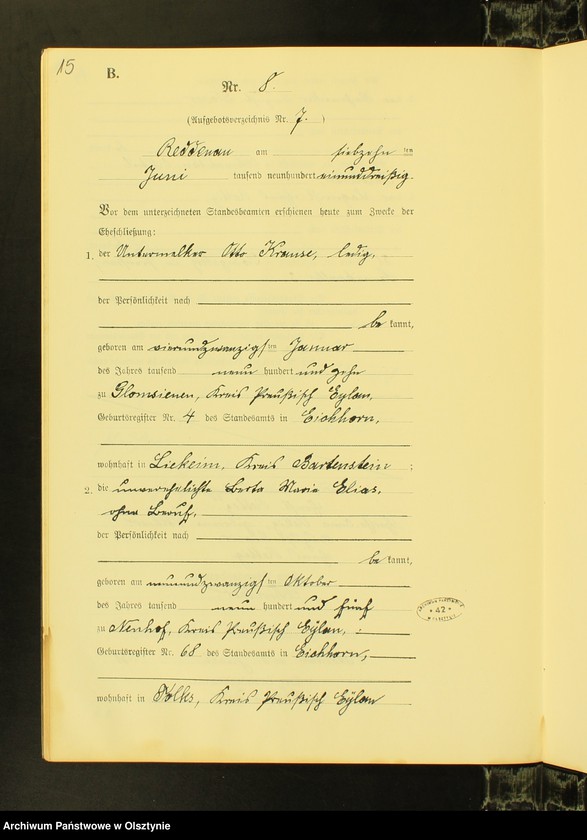 15
B.
Nr. 8.
(Aufgebotsverzeichnis Nr. 7.)
Reddenau am siebzehn ten
Juni tausend neunhundert einunddreißig.
Vor dem unterzeichneten Standesbeamten erschienen heute zum Zwecke der
Eheschließung:
1. der Untermelker Otto Krause, ledig,
der Persönlichkeit nach
be kannt,
geboren am vierundzwanzigs ten Januar
des Jahres tausend neun hundert und zehn
zu Glomsienen, Kreis Preußisch Eylau,
Geburtsregister Nr. 4 des Standesamts in Eichhorn,
wohnhaft in Liekeim, Kreis Bartenstein ;
2. die unverehelichte Berta Marie Elias,
ohne Beruf,
der Persönlichkeit nach
be kannt,
geboren am neunundzwanzigs ten Oktober
des Jahres tausend neun hundert und fünf
zu Neuhof, Kreis Preußisch Eylau,
Geburtsregister Nr. 68 des Standesamts in Eichhorn,
42
wohnhaft in Tolks, Kreis Preußisch Eylau
Archiwum Państwowe w Olsztynie